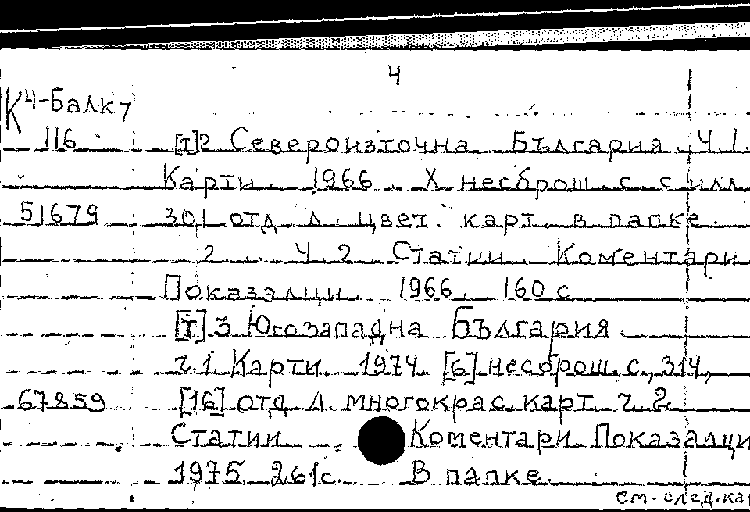 4
К4-Балк7
116 [т]2 Североизточна България Ч 1.
Карти. 1966. X несброш. с. с илл
51679 301 отд л. цвет. карт. в папке.
2. Ч. 2 Статии. Коментари
Показалци. 1966. 160 с
[т] 3 Югозападна България.
ч 1 Карти. 1974. [6] несброш. с., 314,
67859 [16] отд л. многокрас. карт. ч. 2
Статии. Коментари Показалци
1975 261с. В папке.
см. след. кар